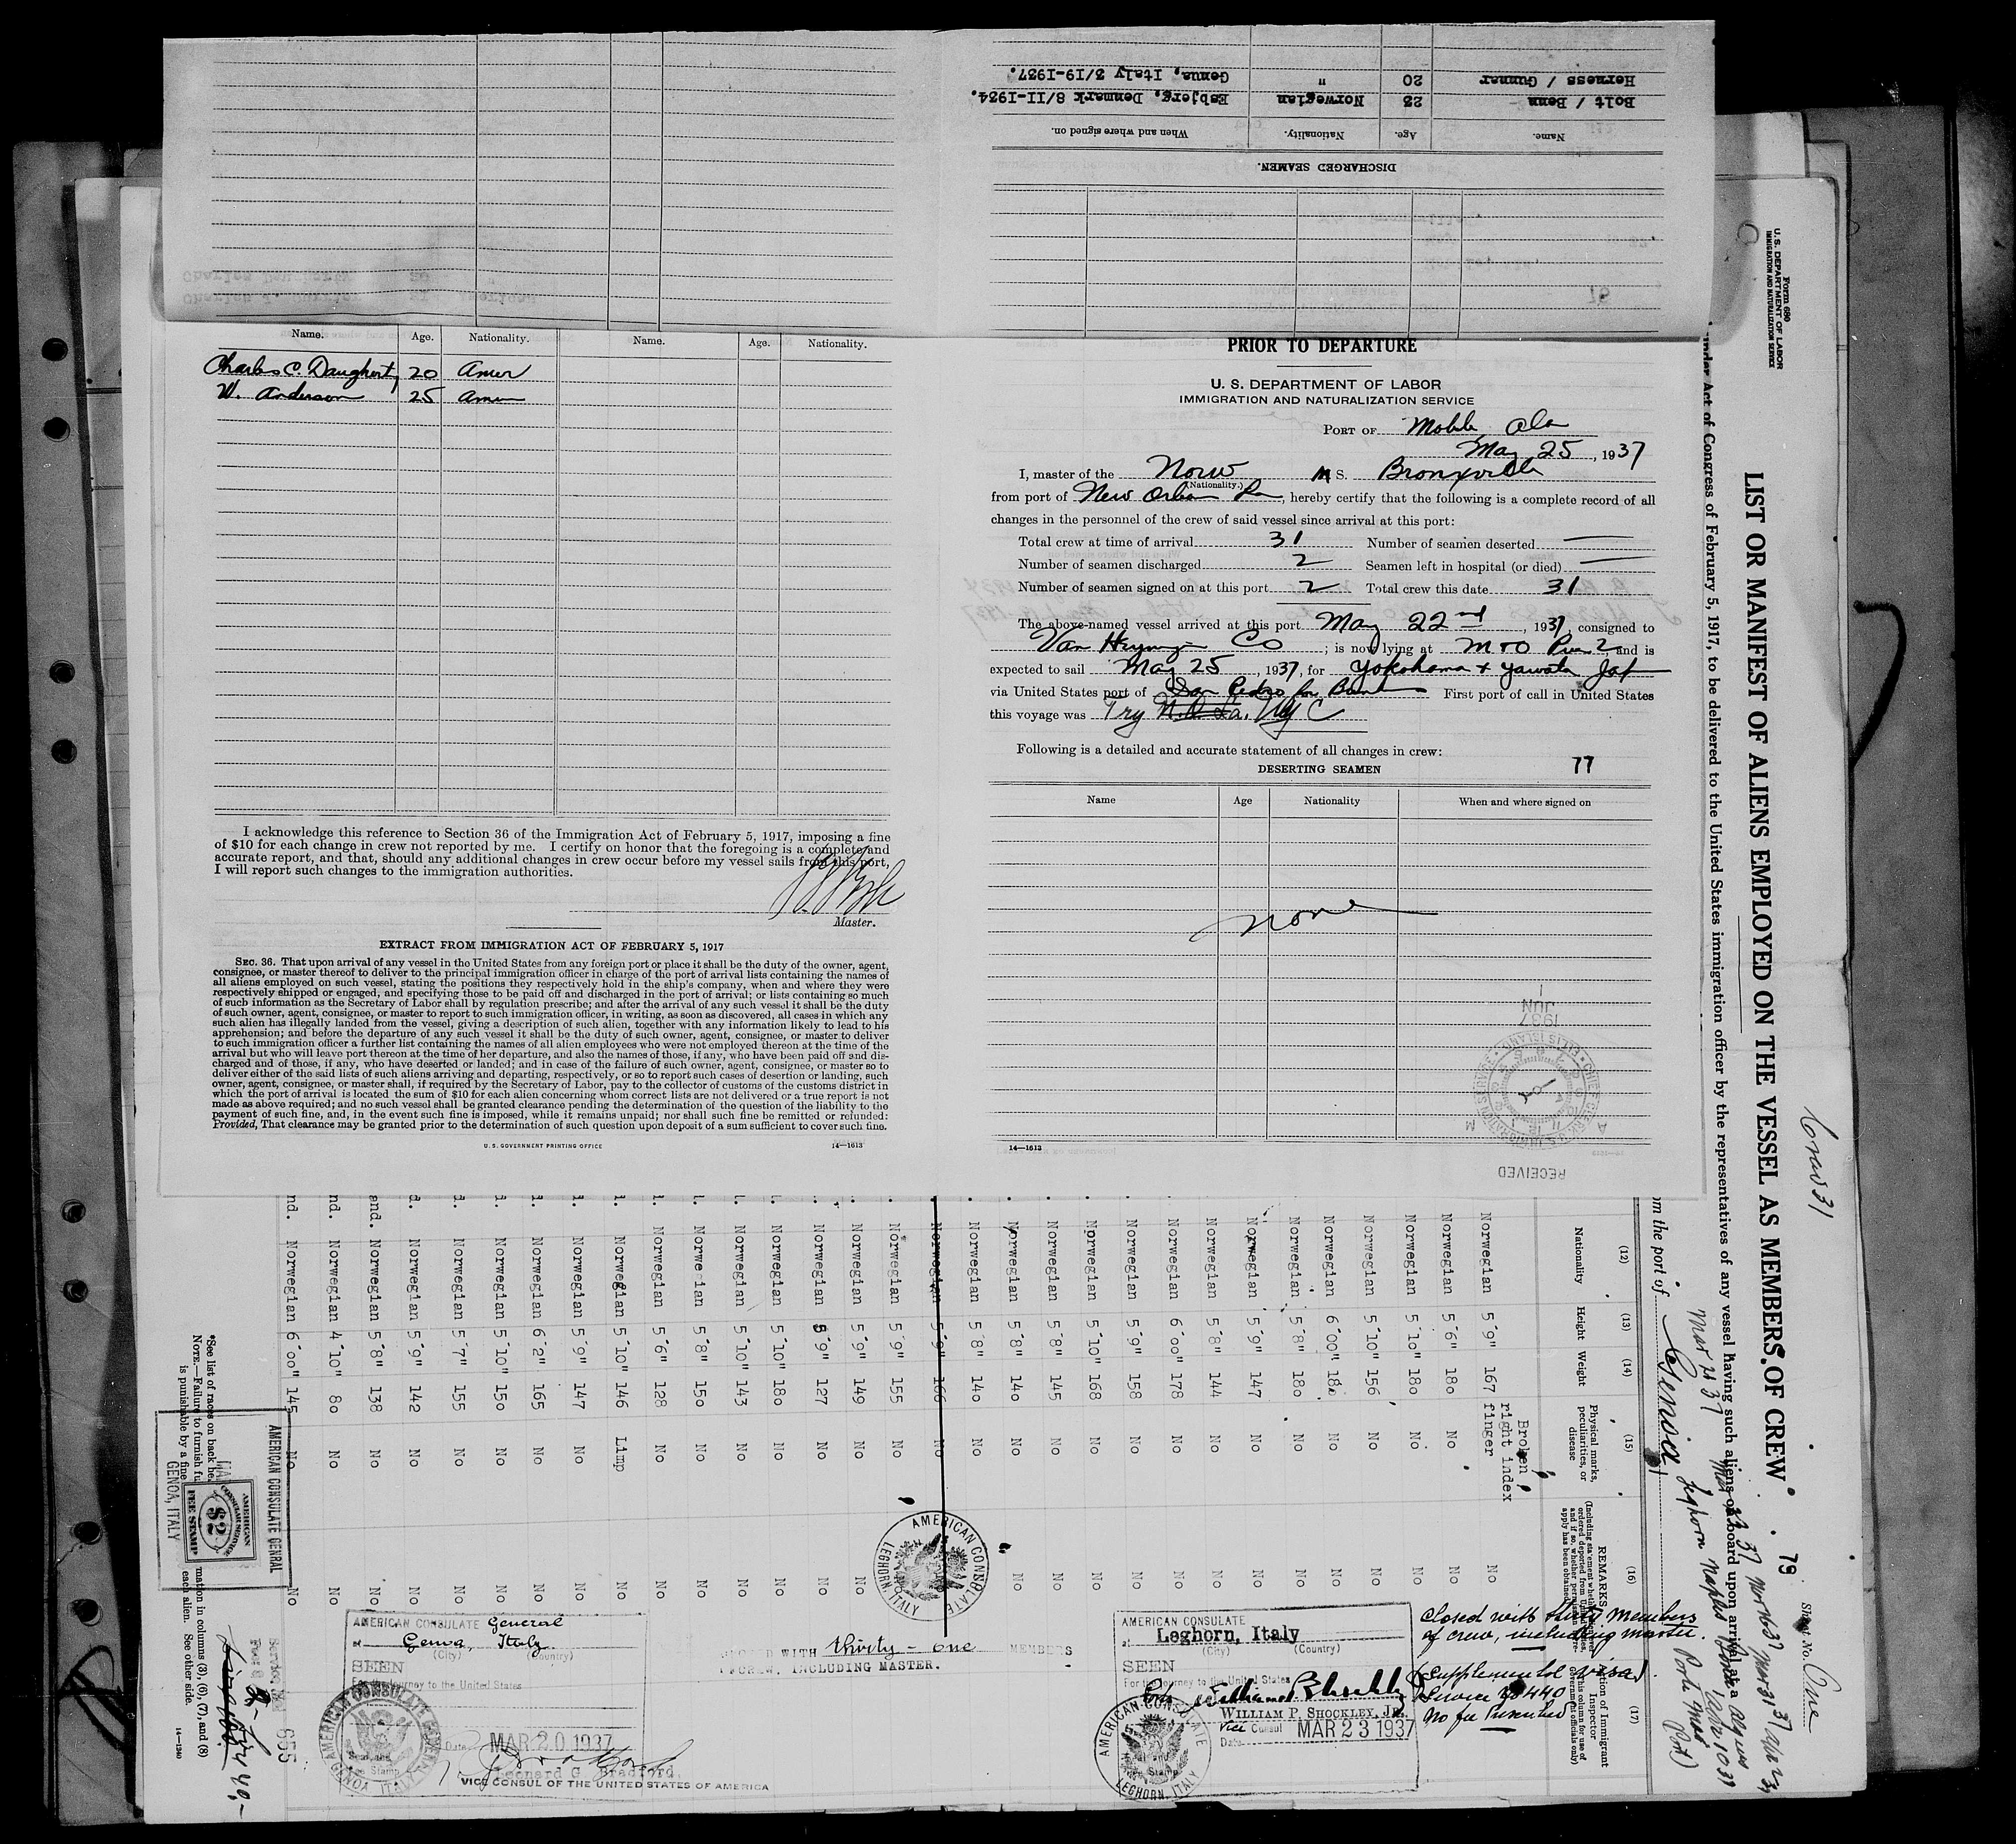 Herness / Gunnar 20 " Genua, Italy 3/19-1937.
Bolt / Benn 23 Norwegian Esbjerg, Denmark 8/11-1934.
Name. Age. Nationality. When and where signed on.
DISCHARGED SEAMEN.
Name. Age. Nationality. Name. Age. Nationality.
Charles C. Daugherty 20 Amer
W. Anderson 25 Amer
I acknowledge this reference to Section 36 of the Immigration Act of February 5, 1917, imposing a fine
of $10 for each change in crew not reported by me. I certify on honor that the foregoing is a complete and
accurate report, and that, should any additional changes in crew occur before my vessel sails from this port,
I will report such changes to the immigration authorities.
Master.
EXTRACT FROM IMMIGRATION ACT OF FEBRUARY 5, 1917
SEC. 36. That upon arrival of any vessel in the United States from any foreign port or place it shall be the duty of the owner, agent,
consignee, or master thereof to deliver to the principal immigration officer in charge of the port of arrival lists containing the names of
all aliens employed on such vessel, stating the positions they respectively hold in the ship's company, when and where they were
respectively shipped or engaged, and specifying those to be paid off and discharged in the port of arrival; or lists containing so much
of such information as the Secretary of Labor shall by regulation prescribe; and after the arrival of any such vessel it shall be the duty
of such owner, agent, consignee, or master to report to such immigration officer, in writing, as soon as discovered, all cases in which any
such alien has illegally landed from the vessel, giving a description of such alien, together with any information likely to lead to his
apprehension; and before the departure of any such vessel it shall be the duty of such owner, agent, consignee, or master to deliver
to such immigration officer a further list containing the names of all alien employees who were not employed thereon at the time of the
arrival but who will leave port thereon at the time of her departure, and also the names of those, if any, who have been paid off and dis-
charged and of those, if any, who have deserted or landed; and in case of the failure of such owner, agent, consignee, or master so to
deliver either of the said lists of such aliens arriving and departing, respectively, or so to report such cases of desertion or landing, such
owner, agent, consignee, or master shall, if required by the Secretary of Labor, pay to the collector of customs of the customs district in
which the port of arrival is located the sum of $10 for each alien concerning whom correct lists are not delivered or a true report is not
made as above required; and no such vessel shall be granted clearance pending the determination of the question of the liability to the
payment of such fine, and, in the event such fine is imposed, while it remains unpaid; nor shall such fine be remitted or refunded:
Provided, That clearance may be granted prior to the determination of such question upon deposit of a sum sufficient to cover such fine.
U. S. GOVERNMENT PRINTING OFFICE 14—1613
PRIOR TO DEPARTURE
U. S. DEPARTMENT OF LABOR
IMMIGRATION AND NATURALIZATION SERVICE
PORT OF Mobile Ala
May 25, 1937
I, master of the Norw M S. Bronxville
(Nationality.)
from port of New Orleans La, hereby certify that the following is a complete record of all
changes in the personnel of the crew of said vessel since arrival at this port:
Total crew at time of arrival 31 Number of seamen deserted —
Number of seamen discharged 2 Seamen left in hospital (or died) —
Number of seamen signed on at this port 2 Total crew this date 31
The above-named vessel arrived at this port May 22nd, 1937, consigned to
Van Co; is now lying at M & O Pier 2, and is
expected to sail May 25, 1937, for Yokohama + Yawata Jap
via United States port of San Pedro for First port of call in United States
this voyage was Try N.O. La. NYC
Following is a detailed and accurate statement of all changes in crew:
DESERTING SEAMEN 77
Name Age Nationality When and where signed on
None
1937
JUN
1
CHIEF CLERK U.S. IMMIGRATION SERVICE ELLIS ISLAND
RECEIVED
14—1613
Form 680
U. S. DEPARTMENT OF LABOR
IMMIGRATION AND NATURALIZATION SERVICE
Crew 31
79
Sheet No. One
LIST OR MANIFEST OF ALIENS EMPLOYED ON THE VESSEL AS MEMBERS OF CREW
under Act of Congress of February 5, 1917, to be delivered to the United States immigration officer by the representatives of any vessel having such aliens on board upon arrival at a
Mar 21 37 Mar 23 37 Mar 31 37
om the port of Genoa Leghorn Naples
(12) (13) (14) (15) (16) (17)
Nationality Height Weight Physical marks, peculiarities, or disease REMARKS
Action of Immigrant Inspector
(This column for use of Government officials only)
Norwegian 5'9" 167 Broken right index finger No
Norwegian 5'6" 180 No No
Norwegian 5'10" 180 No No
Norwegian 5'10" 156 No No
Norwegian 6'00" 180 No No
Norwegian 5'8" 180 No No
Norwegian 5'9" 147 No No
Norwegian 5'8" 144 No No
Norwegian 6'00" 178 No No
Norwegian 5'9" 158 No No
Norwegian 5'10" 168 No No
Norwegian 5'8" 145 No No
Norwegian 5'8" 140 No No
Norwegian 5'8" 140 No
Norwegian 5'9" 166 No
Norwegian 5'9" 155 No
Norwegian 5'9" 149 No No
Norwegian 5'9" 127 No No
Norwegian 5'10" 180 No No
Norwegian 5'10" 143 No No
Norwegian 5'8" 150 No No
Norwegian 5'6" 128 No No
Norwegian 5'10" 146 Limp No
Norwegian 5'9" 147 No No
Norwegian 6'2" 165 No No
Norwegian 5'10" 150 No No
Norwegian 5'7" 155 No No
Norwegian 5'9" 142 No No
Norwegian 5'8" 138 No No
Norwegian 4'10" 80 No No
Norwegian 6'00" 145 No No
Closed with thirty members
of crew, including master.
(Supplemental visa)
Service No 440
No fee Prescribed
AMERICAN CONSULATE
at Leghorn, Italy
(City) (Country)
SEEN
For the journey to the United States
WILLIAM P. SHOCKLEY, JR.
Vice Consul
Date MAR 23 1937
AMERICAN CONSULATE LEGHORN, ITALY
AMERICAN CONSULATE LEGHORN ITALY
WITH thirty-one MEMBERS
CREW, INCLUDING MASTER.
AMERICAN CONSULATE General
at Genoa, Italy
(City) (Country)
SEEN
For the journey to the United States
Date MAR 20 1937
Leonard G. Bradford
VICE CONSUL OF THE UNITED STATES OF AMERICA
AMERICAN CONSULATE GENERAL GENOA ITALY
AMERICAN CONSULATE GENRAL
GENOA, ITALY
AMERICAN
CONSULAR SERVICE
$2
FEE STAMP
Service No 655
*See list of races on back he
NOTE.—Failure to furnish fu mation in columns (3), (6), (7), and (8)
is punishable by a fine each alien. See other side.
14—1240